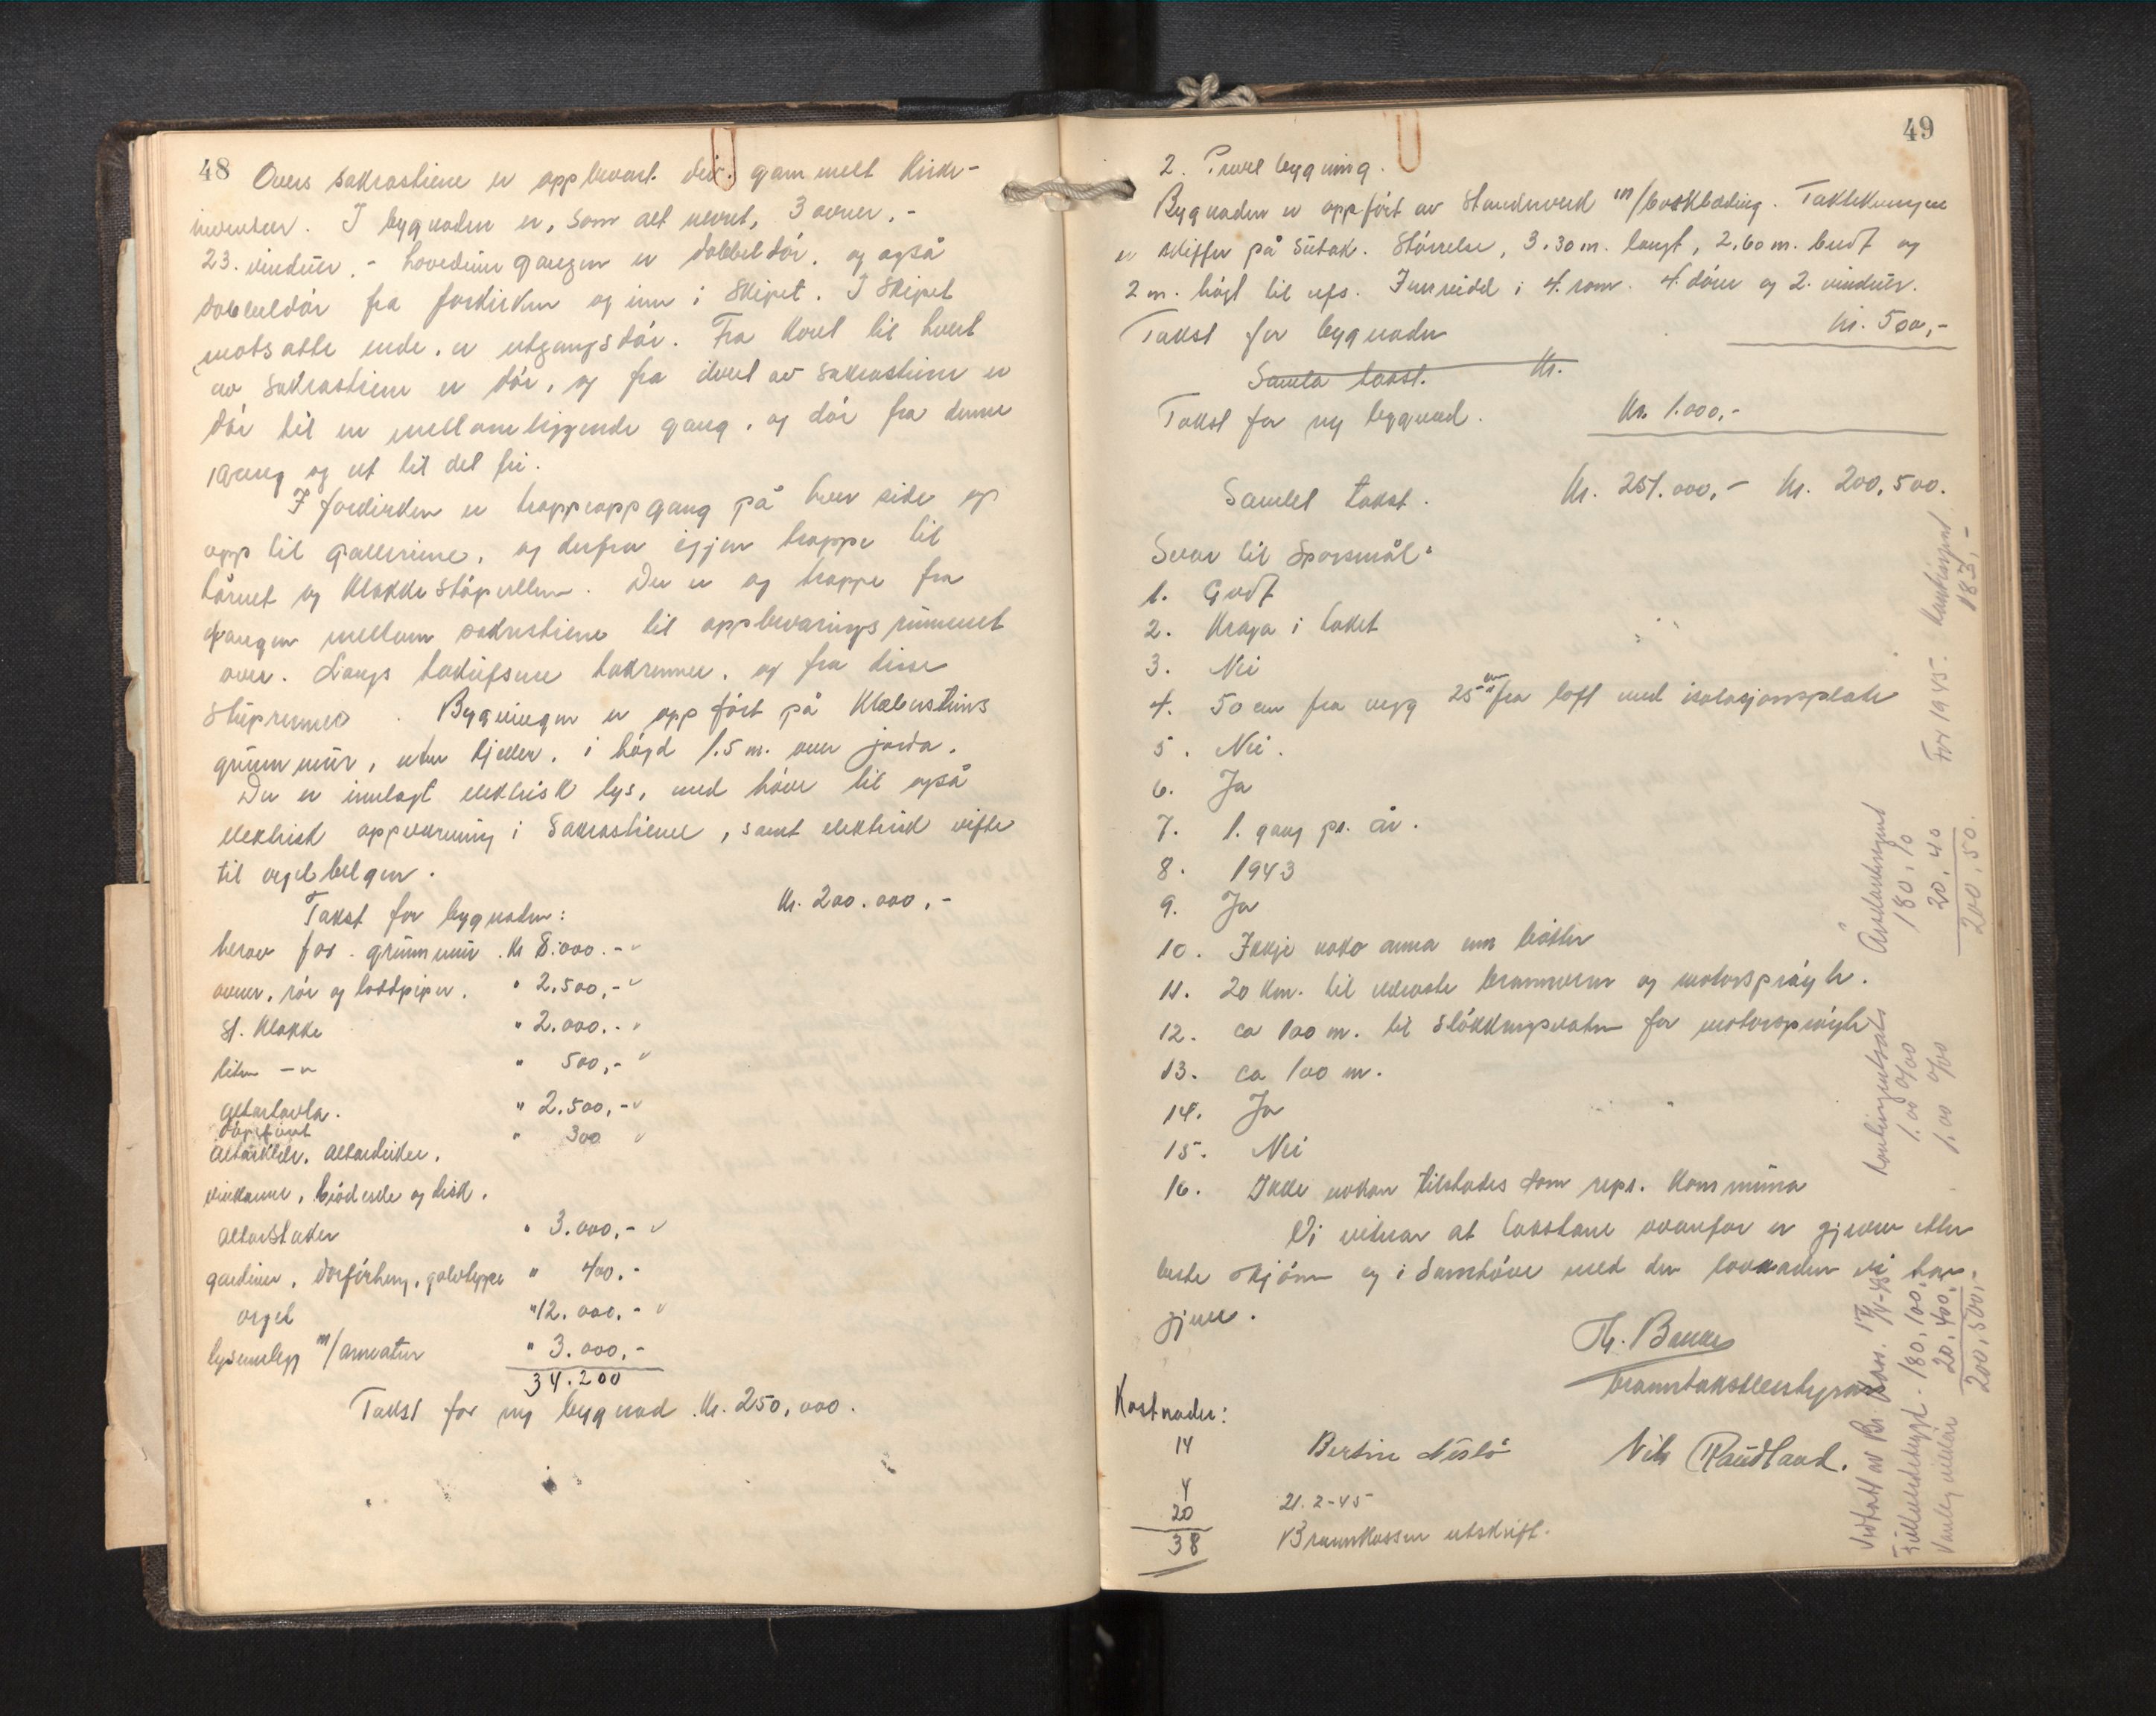 48
Overs sakrastiene er oppbevart div. gammelt Kirke-
inventar. I bygnaden er, som alt nevnt, 3 ovner, -
23. vinduer. - hovedinngangen er dobbeldör, og også
dobbeldör fra fordirken og inn i Skipet. I Skipet
motsatte ende, er utgangsdör. Fra Koret til hvert
av Sakrastiene er dör, og fra hvert av Sakrastiene er
dör til en mellomliggende gang, og dör fra denne
gang og ut til det fri.
I fordirken er trappeoppgang på hver side og
opp til galleriene, og derfra igjen trappe til
tårnet og Klokkestöpullen. Der er og trappe fra
gangen mellom sakrastiene til oppbevaringsrummet
over. Langs takufsene takrenner, og fra disse
stuprenner. Bygningen er oppfört på Klebersteins
grunnmur, uten kjeller, i högd 1.5 m. over jorda.
Der er innlagt elektrisk lys, med höve til også
elektrisk oppvarming i Sakrastiene, samt elektrisk vifte
til orgelbelgen.
Takst for bygnaden: Kr. 200.000,-
herav for grunnmur Kr 8.000.-
ovner, rör og   " 2.500,-
St. Klokke " 2.000.-
liten -"- " 500,-
Altartavla. " 2.500,-
döpefont " 300
Altarklede, Altarduker,
vinkanne, brödeske og disk,
Altarstaker " 3.000,-
gardiner, , golvteppe " 400,-
orgel " 12.000,-
lysanlegg m/armatur " 3.000,-
34.200
Takst for ny bygnad Kr. 250,000.
49
2. Privet bygning.
Bygnaden er oppfört av Standverk m/bordklæding. Taktekkingen
er skiffer på Sutak. Störrelse, 3.30 m. langt, 2,60 m. bredt og
2 m. högt til ufs. Innreidd i 4. rom. 4. dörer og 2. vinduer.
Takst for bygnaden kr. 500,-
Samla takst. Kr.
Takst for ny bygnad. Kr. 1.000,-
Samlet takst. Kr. 251.000,- Kr. 200,500.
Svar til Sporsmål:
1. Godt
2. Kraga i taket
3. Nei
4. 50 cm fra vegg 25 cm fra loft med isolasjonsplate
5. Nei.
6. Ja
7. 1. gang pr. år.
8. 1943
9. Ja
10. Ikkje noko anna enn bötter
11. 20 km. til næraste brannvern og motorspröyte.
12. ca 100 m. til Slökkingsvatn for motorspröyte
13. ca 100 m.
14. Ja
15. Nei
16. Ikke nokon tilstades som repr. Kommuna
Vi vitnar at takstane ovanfor er gjevne etter
beste skjönn og i Samhöve med den lovnaden vi har
gjeve.
Th. Bakke
branntakstlenstyrar
Kostnader:
14
4
20
38
Bertin Neslö
Nils Raudland.
21. 2-45
Brannkassen utskrift.
For 1945. Kontingent
183,-
Årskontingent
180,10
20,40
200,50.
Kontingentsats
1.00 0/00
1.00 0/00
Vedtatt av Br. kass.
Fullverdetrygd. 180,100.
Vanleg vilkår 20,400,-
200,500,-